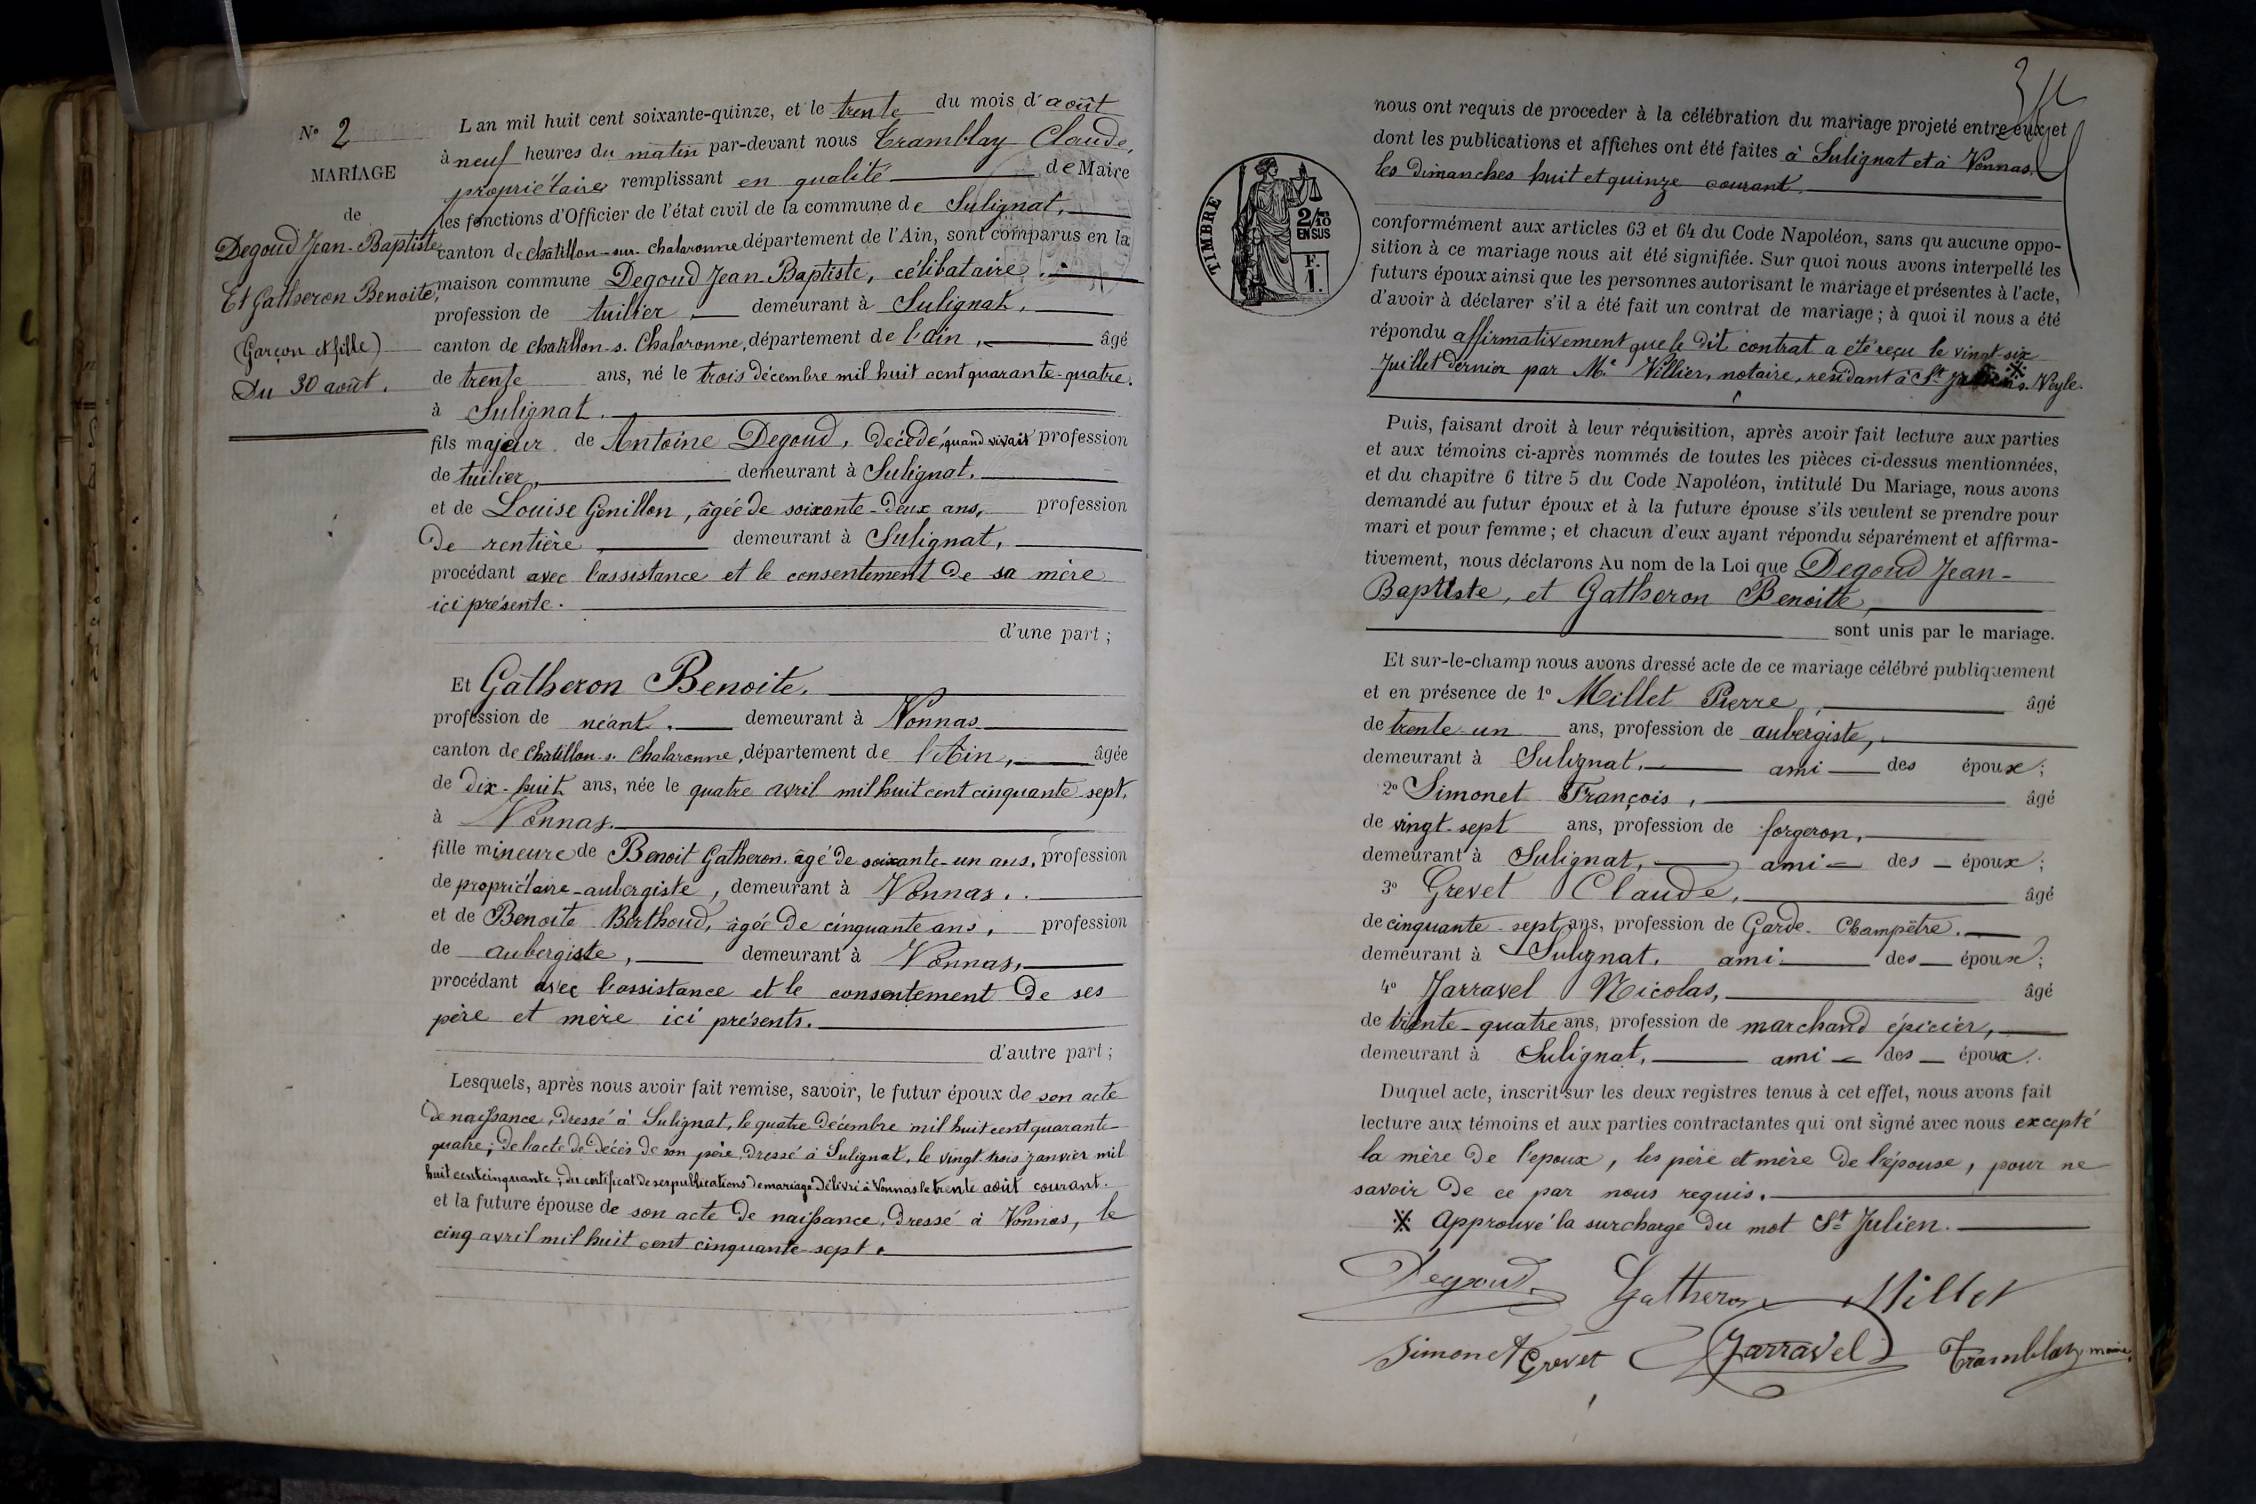 N° 2
MARIAGE
de
Degoud Jean-Baptiste
Et Gatheron Benoite,
(Garçon et fille)
Du 30 août.
L'an mil huit cent soixante-quinze, et le trente du mois d'août
à neuf heures du matin par-devant nous Tramblay Claude,
propriétaire remplissant en qualité de Maire
les fonctions d'Officier de l'état civil de la commune de Sulignat,
canton de Châtillon-sur-Chalaronne département de l'Ain, sont comparus en la
maison commune Degoud Jean-Baptiste, célibataire.
profession de tuilier demeurant à Sulignat,
canton de Chatillon-s-Chalaronne, département de l'ain, âgé
de trente ans, né le trois décembre mil huit cent quarante-quatre.
à Sulignat.
fils majeur de Antoine Degoud, décédé, quand vivait profession
de tuilier, demeurant à Sulignat.
et de Louise Génillon, âgée de soixante-deux ans, profession
de rentière demeurant à Sulignat,
procédant avec l'assistance et le consentement de sa mère
ici présente.
d'une part;
Et Gatheron Benoite.
profession de néant. demeurant à Vonnas
canton de Chatillon-s-Chalaronne, département de l'Ain, âgée
de dix-huit ans, née le quatre avril mil huit cent cinquante-sept,
à Vonnas.
fille mineure de Benoit Gatheron, âgé de soixante-un ans, profession
de propriétaire-aubergiste, demeurant à Vonnas.
et de Benoite Berthoud, âgée de cinquante ans, profession
de aubergiste, demeurant à Vonnas,
procédant avec l'assistance et le consentement de ses
père et mère ici présents.
d'autre part;
Lesquels, après nous avoir fait remise, savoir, le futur époux de son acte
de naissance, dressé à Sulignat, le quatre décembre mil huit cent quarante-
quatre; de l'acte de décès de son père, dressé à Sulignat, le vingt-trois janvier mil
huit cent cinquante; du certificat de ses publications de mariage délivré à Vonnas le trente août courant.
et la future épouse de son acte de naissance, dressé à Vonnas, le
cinq avril mil huit cent cinquante-sept.
TIMBRE
2/10
EN SUS
F.
1.
nous ont requis de proceder à la célébration du mariage projeté entre eux et
dont les publications et affiches ont été faites à Sulignat et à Vonnas,
les dimanches huit et quinze courant.
conformément aux articles 63 et 64 du Code Napoléon, sans qu'aucune oppo-
sition à ce mariage nous ait été signifiée. Sur quoi nous avons interpellé les
futurs époux ainsi que les personnes autorisant le mariage et présentes à l'acte,
d'avoir à déclarer s'il a été fait un contrat de mariage; à quoi il nous a été
répondu affirmativement que le dit contrat a été reçu le vingt-six
Juillet dernier par Me Villier, notaire, résidant à St Julien s. Veyle.
Puis, faisant droit à leur réquisition, après avoir fait lecture aux parties
et aux témoins ci-après nommés de toutes les pièces ci-dessus mentionnées,
et du chapitre 6 titre 5 du Code Napoléon, intitulé Du Mariage, nous avons
demandé au futur époux et à la future épouse s'ils veulent se prendre pour
mari et pour femme; et chacun d'eux ayant répondu séparément et affirma-
tivement, nous déclarons Au nom de la Loi que Degoud Jean-
Baptiste, et Gatheron Benoite,
sont unis par le mariage.
Et sur-le-champ nous avons dressé acte de ce mariage célébré publiquement
et en présence de 1° Millet Pierre, âgé
de trente-un ans, profession de aubergiste,
demeurant à Sulignat, ami des époux;
2° Simonet François, âgé
de vingt-sept ans, profession de forgeron,
demeurant à Sulignat, ami des époux;
3° Grevet Claude, âgé
de cinquante-sept ans, profession de Garde-Champêtre.
demeurant à Sulignat. ami des époux;
4° Jarravel Nicolas, âgé
de trente-quatre ans, profession de marchand épicier,
demeurant à Sulignat, ami des époux.
Duquel acte, inscrit sur les deux registres tenus à cet effet, nous avons fait
lecture aux témoins et aux parties contractantes qui ont signé avec nous excepté
la mère de l'époux, les père et mère de l'épouse, pour ne
savoir de ce par nous requis.
※ Approuvé la surcharge du mot St Julien.
Degoud Gatheron Millet
Simonet Grevet Jarravel Tramblay maire